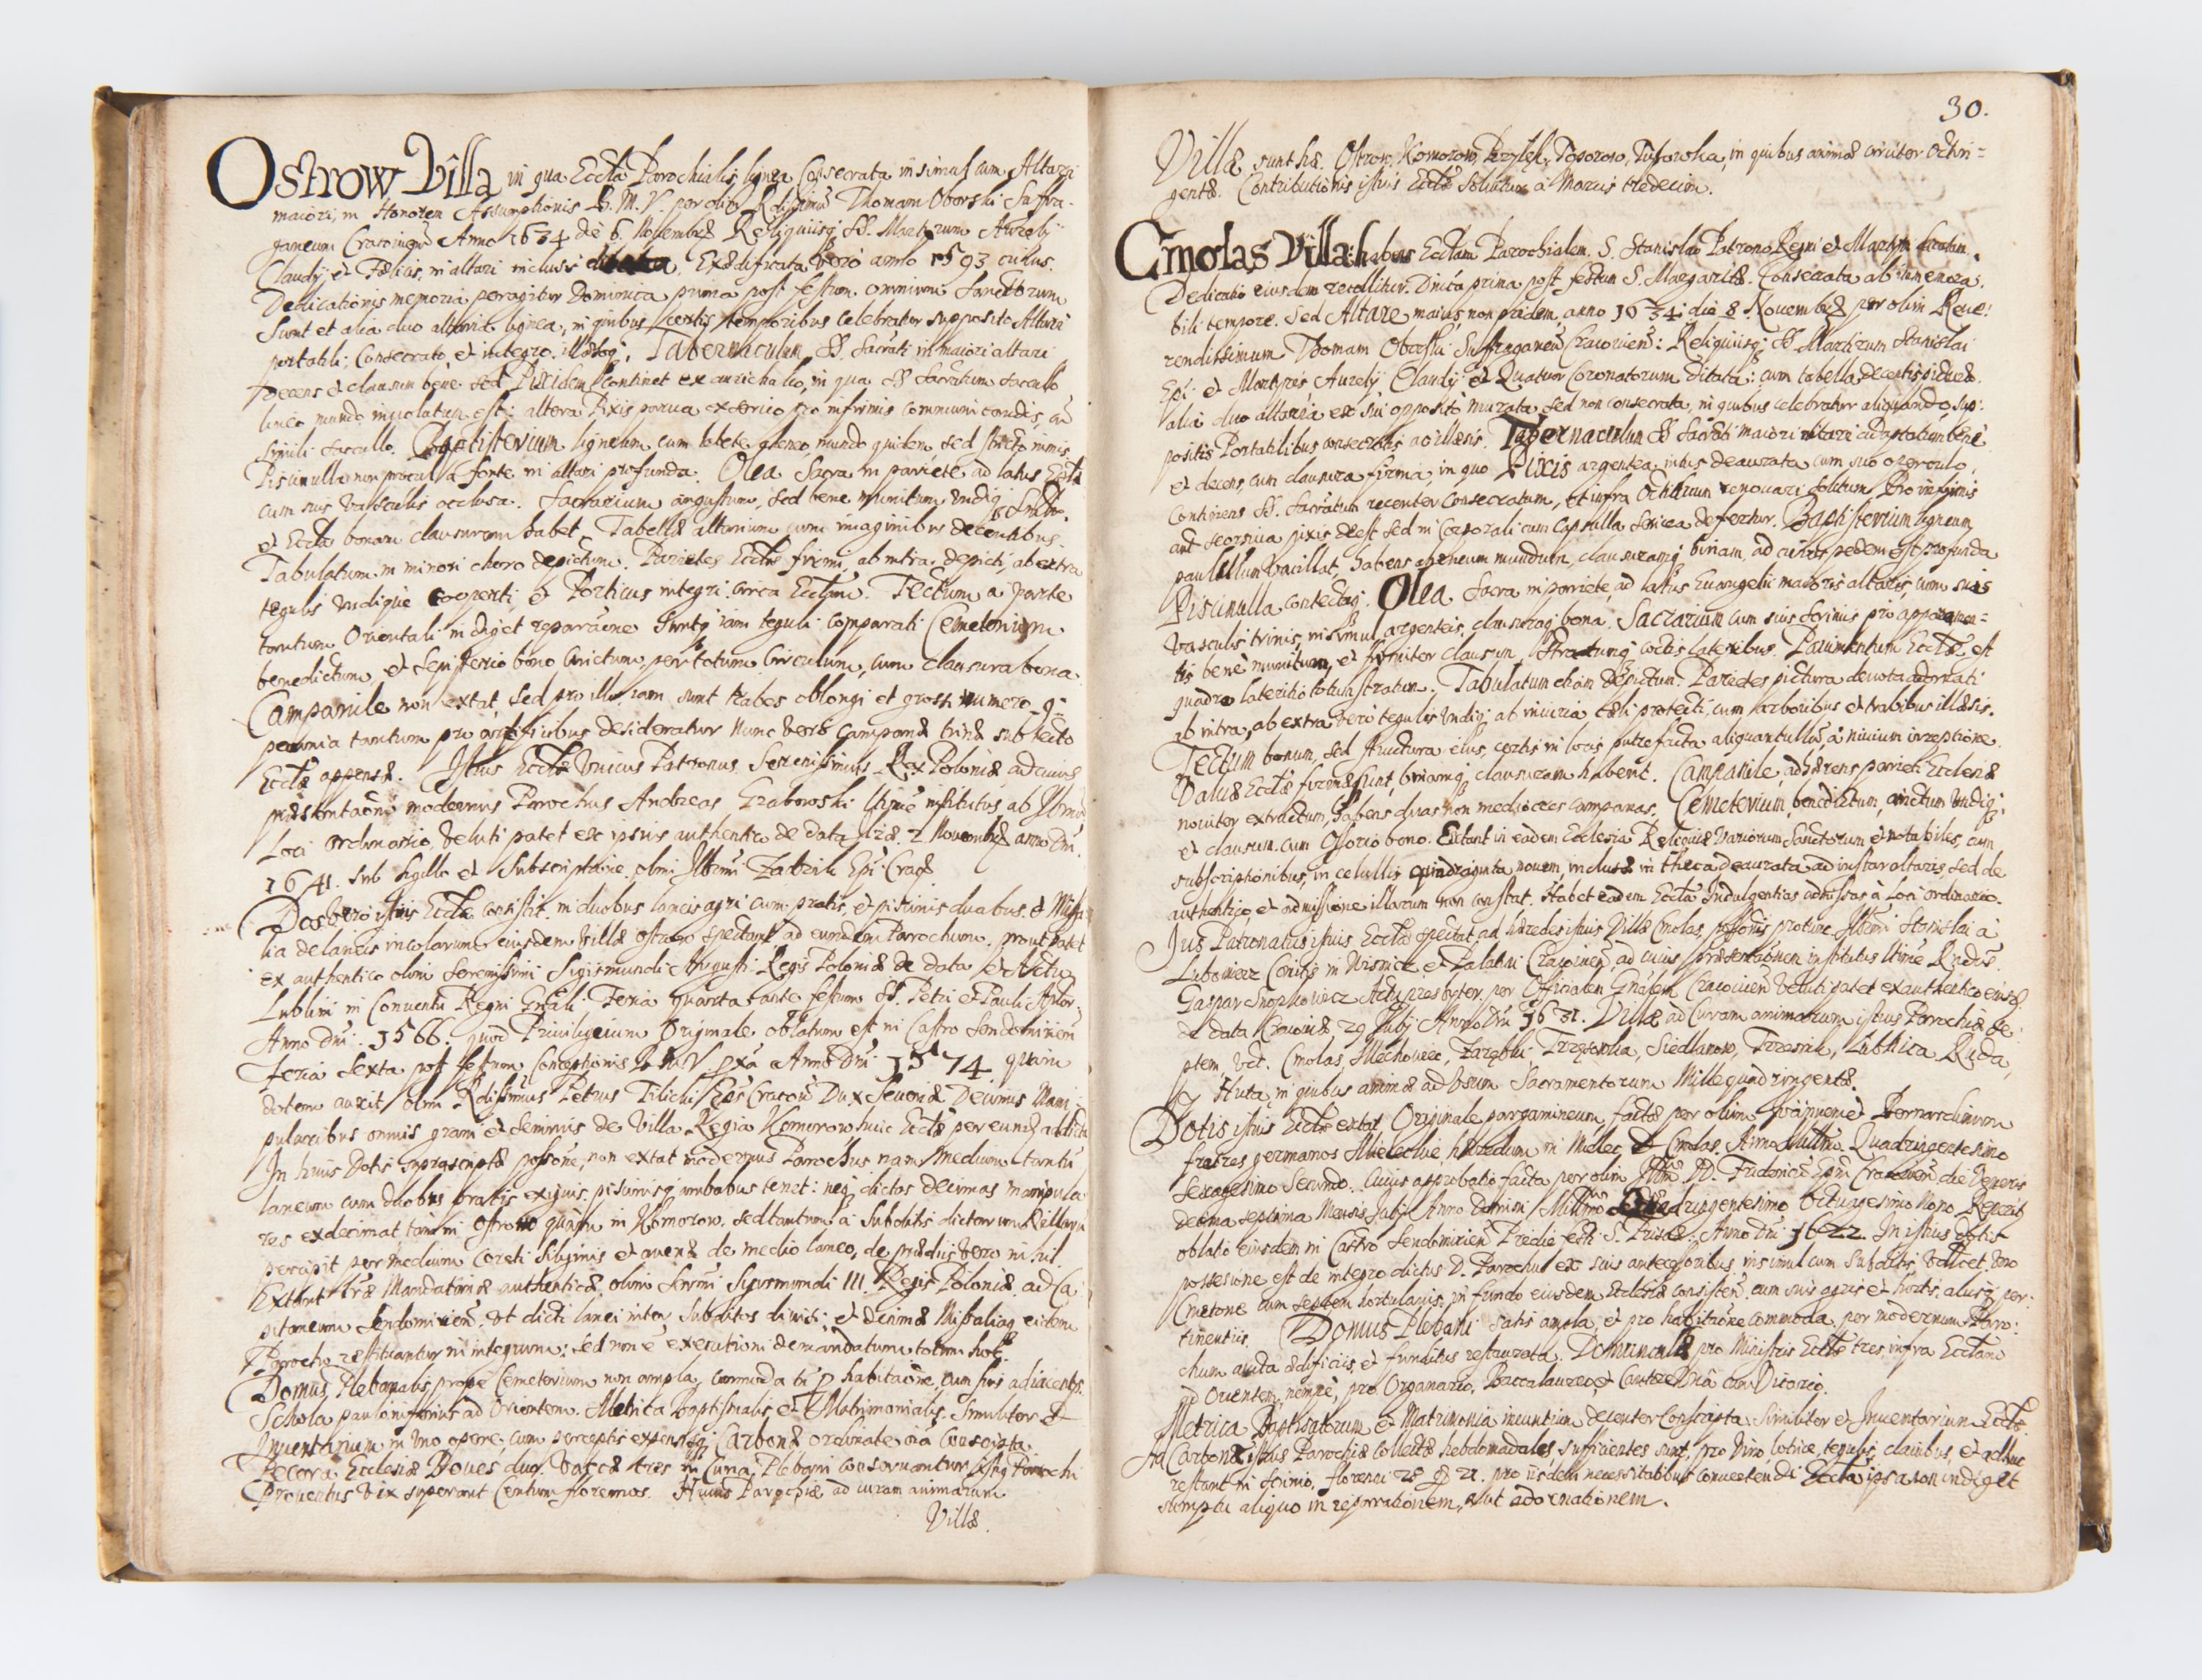 Ostrow Villa in qua Eccla Parochialis lignea Consecrata insimul cum Altari
maiori, in Honorem Assumptionis B. M. V. per olim Rdissimu Thomam Oborski Suffra-
ganeum Cracouien Anno 1634 die 6 Nouembris Reliquiisq SS. Martyrum Aurelij
Claudij et Fælicis, in altari inclusis. Exædificata vero anno 1593 cuius
Dedicationis memoria peragitur Dominica prima post festum omnium Sanctorum
Sunt et alia duo altaria lignea, in quibus certis temporibus celebratur supposito Altari
portatili, Consecrato et integro. Tabernaculum SS. Sacrati in maiori altari
Decens et clausum bene sed Pixidem continet ex aurichalco, in qua SS Sacratum sacculo
lineo mundo inuolutum est; altera Pixis parua ex serico pro infirmis communicandis, cu
simili sacculo. Baptisterium ligneum cum lebete æneo mundo quidem, sed stricto nimis
Piscinulla non procul a fonte in altari profunda. Olea Sacra in pariete ad latus
cum suis vasculis occlusa. Sacrarium angustum, sed bene munitum undiq
et Eccla bonam clausuram habet. Tabellæ altarium cum imaginibus decentibus
Tabulatum in minori choro depictum. Parietes Ecclæ firmi, ab intra depicti, ab extra
tegulis undique cooperti, et Porticus integri circa Ecclam. Tectum a parte
tantum Orientali indiget reparaone suntq iam tegulæ comparati Cemeterium
benedictum, et sepiterio bono cinctum, per totum circulum, cum clausura bona.
Campanile non extat, sed pro illo iam sunt trabes oblongi et grossi numero 9.
pecunia tantum pro artificibus desideratur Nunc vero Campanæ binæ sub tecto
Ecclæ appensæ. Istius Ecclæ Vnicus Patronus Serenissimus Rex Poloniæ ad cuius
præsentaone modernus Parochus Andreas Grabowski ltime institutus ab Illmo
Loci ordinario, veluti patet ex ipsius authentico de data 2 Nouembris anno Dni.
1641. sub sigillo et subscriptione olim Illmi Zadzik Epi Crac
Dos vero istius Ecclæ consistit in duobus laneis agri cum pratis, et piscinis duabus. et Missa
lia de laneis incolarum eiusdem villæ Ostrow spectant ad eundem Parochum, prout patet
ex authentico olim Serenissimi Sigismundi Augusti Regis Poloniæ de data et Actu
Lublini in Conuentu Regni Gnali Feria quarta ante festum SS. Petri et Pauli Aplor,
Anno Dni. 1566. quod Priuilegium Originale oblatum est in Castro Sendomirien
Feria Sexta post festum Conceptionis B M V pxa Anno Dni 1574 quam
dotem auxit olim Rdissimus Petrus Tilicki Eps Cracou Dux Seueriæ Decimis Mani-
pularibus omnis grani et seminis de Villa Regia Komorow huic Ecclæ per eund
In huius Dotis suprascriptæ possone, non extat modernus Parochus nam medium tantu
laneum cum duobus pratis exiguis, piscinisq ambabus tenet: neq dictas decimas manipula
res exdecimat tam in Ostrow quam in Komorow, sed tantum à subditis dictarum Villaru
percipit per medium coreti siliginis et auenæ de medio laneo, de prædiis vero nihil.
Extant træ Mandatoriæ authenticæ olim Srmi Sigismundi III. Regis Poloniæ, ad Ca-
pitaneum Sendomirien. ut dicti lanei inter subditos diuisi, et decimæ Missaliaq eidem
Parocho restituantur in integrum: sed non e executioni demandatum totum hoc.
Domus Plebanalis prope Cemeterium non ampla, commoda tn p habitaone, cum suis adiacentijs.
Schola paulo inferius ad Orientem. Metrica baptismalis et Matrimonialis. Similiter et
Inuentarium in vno opere cum perceptis expensisq Carbonæ ordinate oia conscripta
Pecora Ecclesiæ Boues duo, Vaccæ tres in Curia Plebani conseruantur istiq Parochi
Prouentus vix superant Centum florenos. Huius Parochiæ ad curam animarum
Villæ.
30.
Villæ sunt hæ. Ostrow, Komorow, Przyłęk, Toporow, in quibus animæ circiter Octin=
gentæ. Contributionis istius Ecclæ soluuntur a Marcis tredecim.
Cmolas Villa: habens Ecclam Parochialem S. Stanislao Patrono Regni et Martyri sacratam.
Dedicatio eiusdem recollitur Dnica prima post festum S. Margaritæ. Consecrata ab immemora-
bili tempore. sed Altare maius, non pridem, anno 1634 die 8 Nouembris per olim Reue-
rendissimum Thomam Oborski Suffraganeu Cracouien: Reliquiisq SS Martirum Stanislai
Epi et Martyris Aurelij Claudij et Quatuor Coronatorum ditata; cum tabella decenti
alia duo altaria ex sui opposito murata, sed non consecrata, in quibus celebratur aliquando sup-
positis Portatilibus consecratis ac illæsis. Tabernaculum SS Sacrati maiori altari adaptatum bene
et decens, cum clausura firma, in quo Pixis argentea, intus deaurata cum suo operculo,
Continens SS. Sacratum recenter Consecratum, et infra Octiduum renouari solitum Pro infirmis
aut seorsiua pixis deest sed in Corporali cum Capsulla sericea defertur. Baptisterium ligneum
paululum vacillat, habens aheneum mundum, clausuramq binam, ad cuius pedem est profunda
Piscinulla contectaq. Olea Sacra in pariete, ad latus Euangelij maioris altaris, cum suis
vasculis trinis, insimul argenteis, clausuraq bona. Sacrarium cum suis scrinijs pro apparamen=
tis bene munitum, et firmiter clausum. Stratumq coctis lateribus. Pauimentum Ecclæ est
quadro lateritio totum stratum. Tabulatum etiam depictum. Parietes pictura deuota adornati
ab intra, ab extra vero tegulis undiq ab iniuria cæli protecti, cum arboribus et trabibus illæsis.
Tectum bonum, sed structura eius, certis in locis putrefacta aliquantullu, a niuium irreptione
Valuæ Ecclæ firmæ sunt, binamq clausuram habent. Campanile, adhærens parieti Ecclesiæ
nouiter extructum, habens duas non mediocres campanas. Cemeterium, benedictum, cinctum undiq
et clausum cum Ossorio bono. Extant in eadem Ecclesia Reliquiæ Variorum Sanctorum et notabiles, cum
subscriptionibus, in celullis quadraginta nouem, inclusæ in theca deaurata ad instar altaris, sed de
authentico et admissione illarum non constat. Habet eadem Eccla Indulgentias admissas à Loci ordinario.
Jus Patronatus istius Ecclæ spectat ad hæredes istius Villæ Cmolas, possonis pro tunc Illmi Stanislai à
Lubomierz Comitis in Wisnicz et Palatini Cracouien, ad cuius præsentaonem institutus ltime Rndus
Gaspar Actu presbyter per Officialem Gnalem Cracouien veluti patet ex authentico eiusd
de data Cracouiæ 29 Julij Anno Dni 1631. Villæ ad Curam animarum istius Parochiæ se-
ptem, vdt. Cmolas, Mechowiec, Zarębki, Trzęsowka, Siedlanow, Trzesnik, Lubnica Ruda,
et Huta, in quibus animæ ad usum Sacramentorum Mille quadringentæ.
Dotis istius Ecclæ extat Originale pargamineum, factæ per olim Joannem et Bernardinum
fratres germanos Mieleckie, hæredum in Mielec et Cmolas. Anno Millmo Quadringentesimo
Sexagesimo Secundo. Cuius approbatio facta per olim Illm D. Fridericu Epm Cracouien die Veneris
decima septima Mensis Julij Anno Domini Millmo Quadringentesimo Octuagesimo Nono. Reperit
oblatio eiusdem in Castro Sendomirien Pridie festi S. Priscæ. Anno Dni 1622. In istius dotis
possesione est de integro dictus D. Parochus ex suis antecessoribus insimul cum Subditis, videlicet, uno
Cmetone cum septem hortulanis, in fundo eiusdem Ecclesiæ consisten, cum suis agris et hortis, alijsq per-
tinentiis. Domus Plebani satis ampla, et pro habitaone commoda, per modernum Paro-
chum aucta ædificiis, et funditus restaurata. Domunculæ pro Ministris Ecclæ tres infra Ecclam
ad Orientem, nempe, pro Organario, Baccalaureo, et Cantore Vna cum Vicario.
Metrica Baptisatorum et Matrimonia ineuntium decenter Conscripta. Similiter et Inuentarium Ecclæ.
Ad Carbonæ istius Parochiæ Collectæ hebdomadales, sufficientes sunt, pro Vino, lotrice, tegulis, clauibus, et adhuc
restant in scrinio, floreni 28 gr 21. pro iisdem necessitatibus conuertendi Eccla ipsa non indiget
sumptu aliquo in reparationem, aut adornationem.